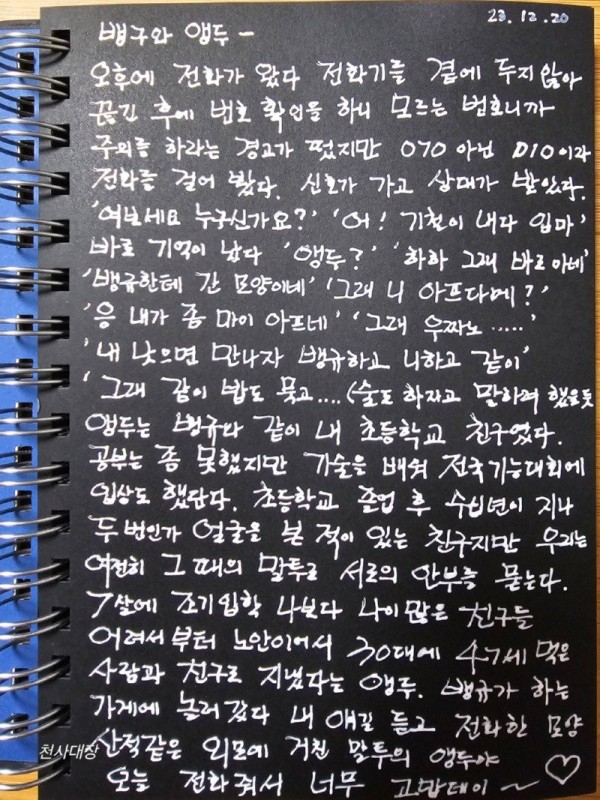 23. 12. 20
뱅규와 앵두 -
오후에 전화가 왔다 전화기를 곁에 두지 않아
끊긴 후에 번호 확인을 하니 모르는 번호니까
주의를 하라는 경고가 떴지만 070 아닌 010이라
전화를 걸어 봤다. 신호가 가고 상대가 받았다.
'여보세요 누구신가요?' '어! 기철이 내다 임마'
바로 기억이 났다 '앵두?' '하하 그래 바로 아네'
'뱅규한테 간 모양이네' '그래 니 아프다메?'
'응 내가 좀 마이 아프네' '그래 우짜노.....'
'내 낫으면 만나자 뱅규하고 니하고 같이'
'그래 같이 밥도 묵고....(술도 하자고 말하려 했을 듯
앵두는 뱅규와 같이 내 초등학교 친구였다.
공부는 좀 못했지만 기술을 배워 전국기능대회에
입상도 했단다. 초등학교 졸업 후 수십년이 지나
두번인가 얼굴을 본 적이 있는 친구지만 우리는
여전히 그때의 말투로 서로의 안부를 묻는다.
7살에 조기입학 나보다 나이많은 친구들
어려서부터 노안이어서 30대에 47세 먹은
사람과 친구로 지냈다는 앵두. 뱅규가 하는
가게에 놀러갔다 내 얘길 듣고 전화한 모양
산적같은 외모에 거친 말투의 앵두야
오늘 전화줘서 너무 고맙데이~♡
천사대장